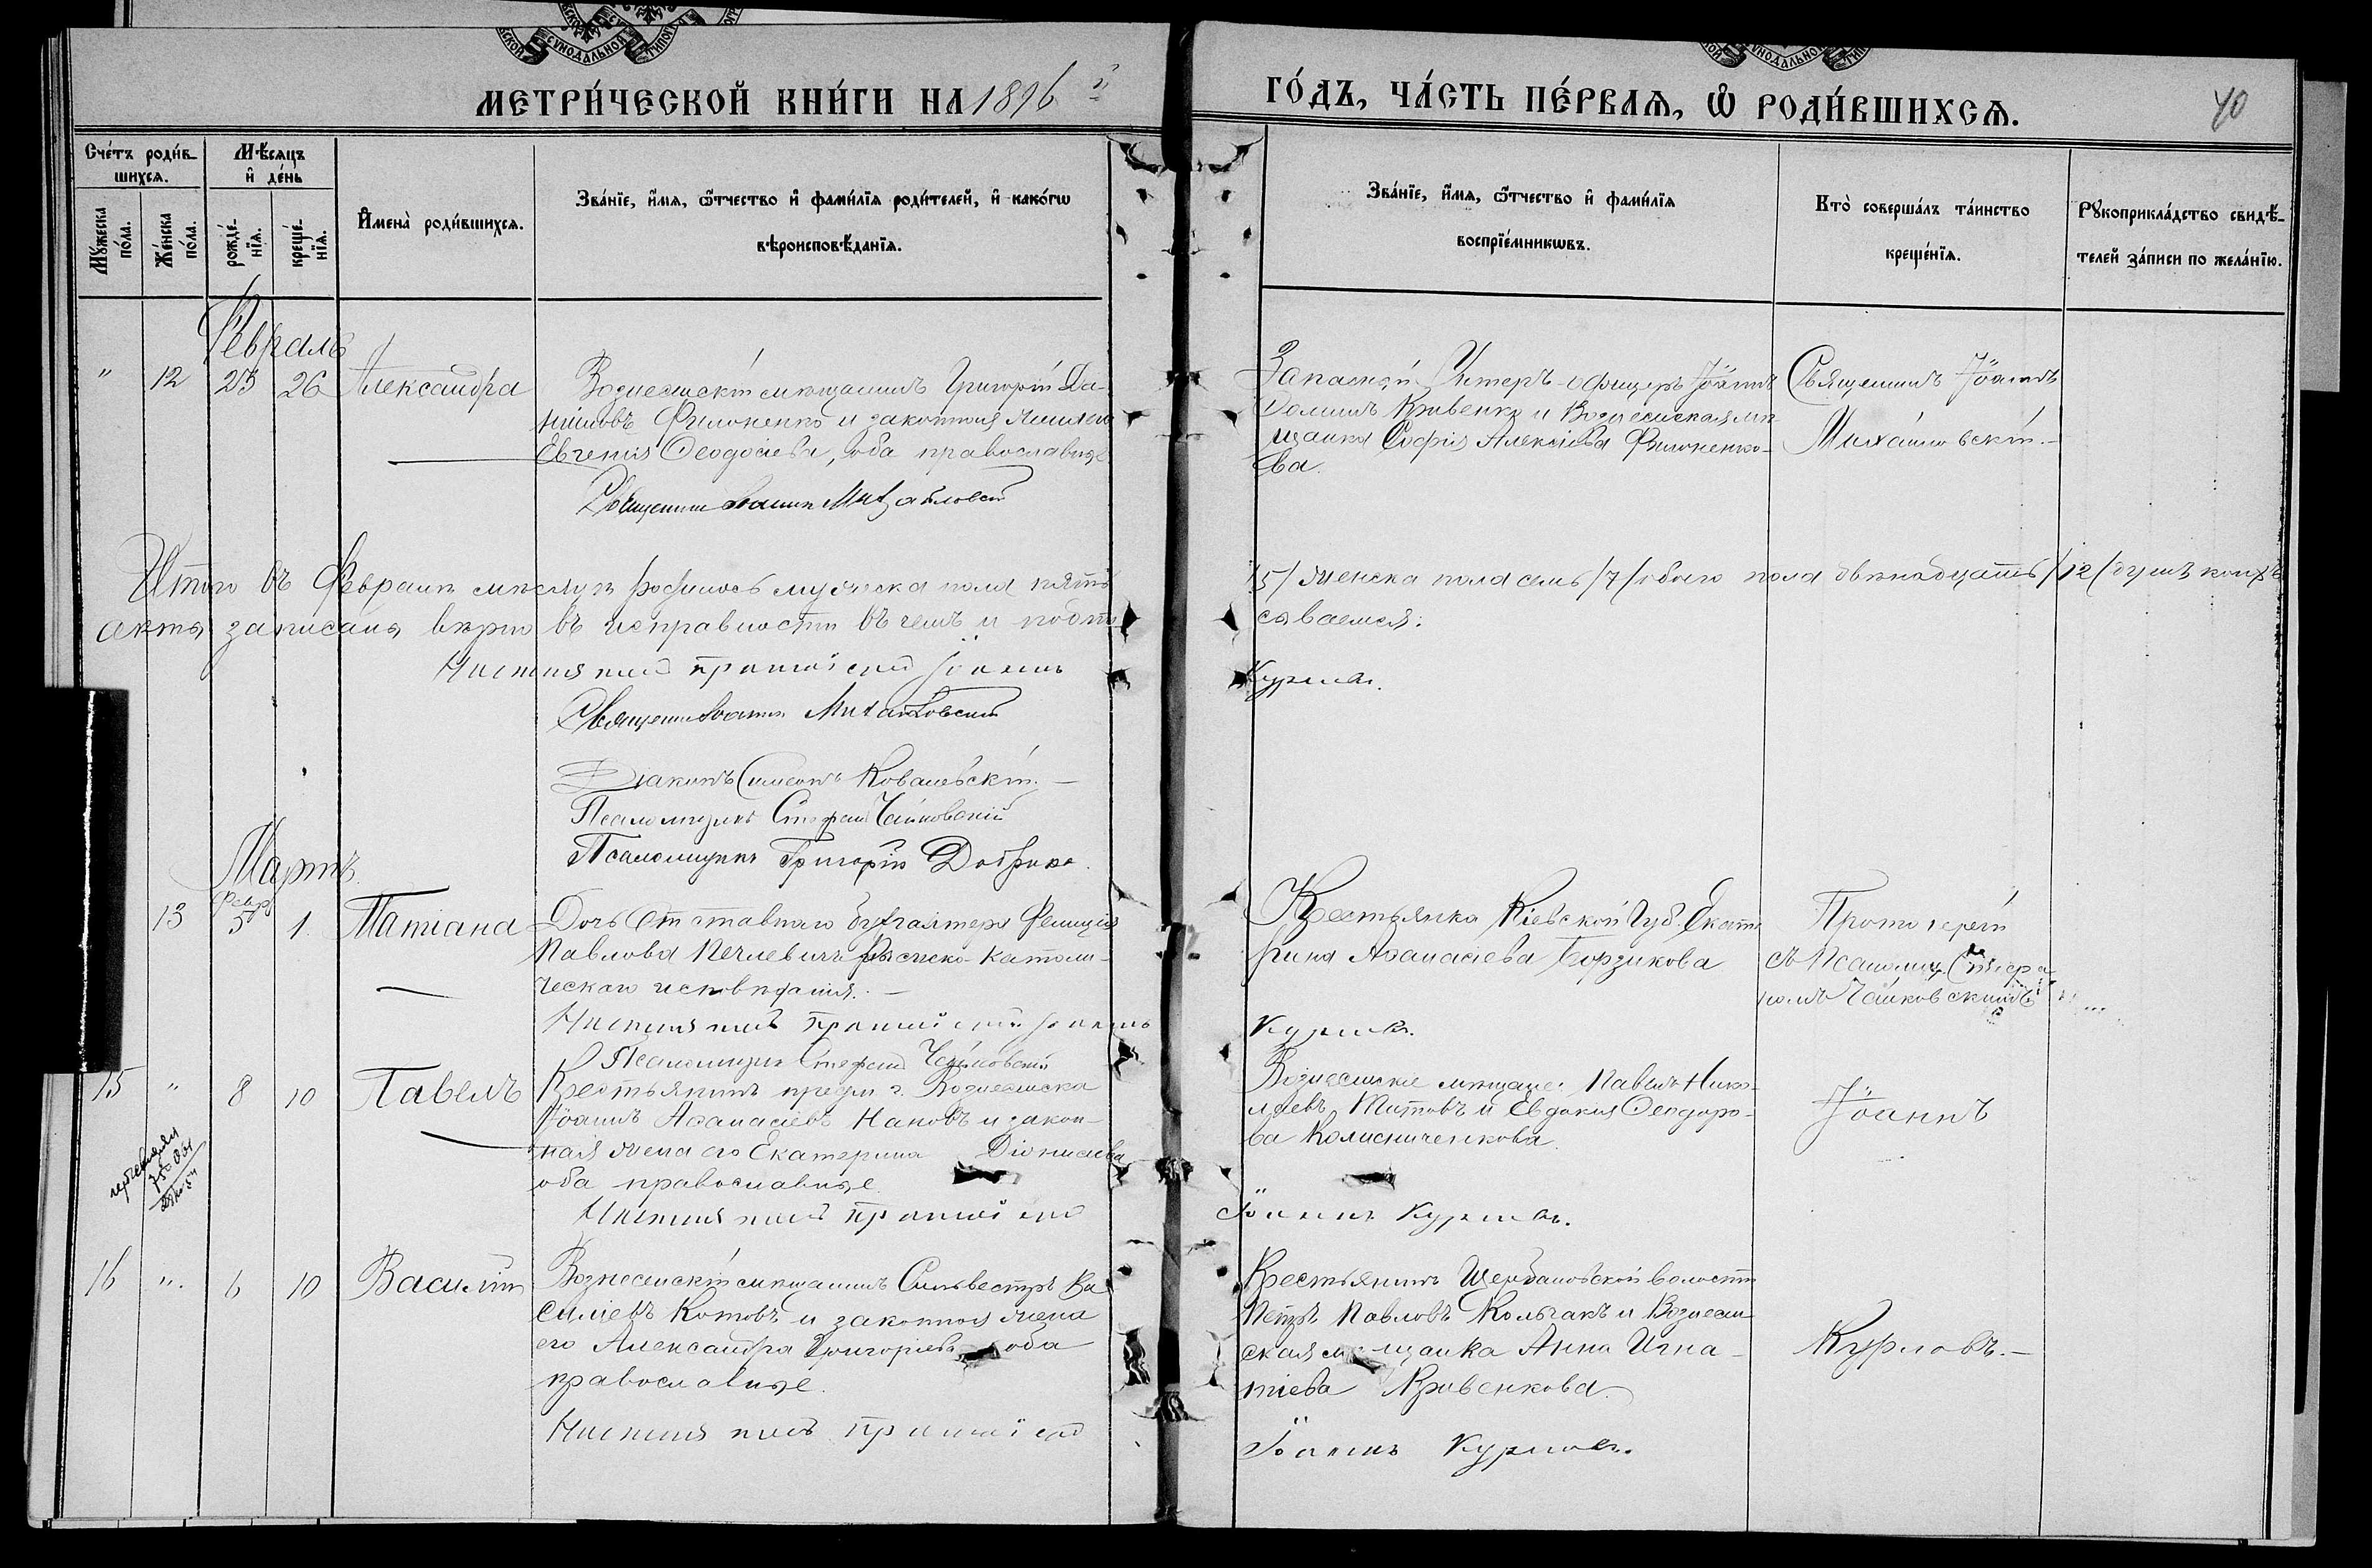 МЕТРИ́ЧЕСКОЙ КНИ́ГИ НА 1896 й
ГО́ДЪ, ЧА́СТЬ ПЕ́РВАѦ, Ѡ РОДИ́ВШИХСѦ.
40
Сче́тъ роди́в-
шихсѧ.
Мѣ́сѧцъ
и де́нь
Мꙋ́жеска по́ла.
Же́нска по́ла.
рожде́-
нїѧ.
креще́-
нїѧ.
Имена̀ роди́вшихсѧ.
Зва́нїе, и́мѧ, ѻ҆́тчество и фами́лїѧ роди́телей, и како́гѡ
вѣроисповѣ́данїѧ.
Зва́нїе, и́мѧ, ѻ҆́тчество и фами́лїѧ
воспрїе́мникѡвъ.
Кто̀ соверша́лъ та́инство
креще́нїѧ.
Рꙋкоприкла́дство свидѣ́-
телей за́писи по жела́нїю.
Февраль
" 12 25 26 Александра
Вознесенскій мѣщанинъ Григорій Да-
ниловъ Филоненко и законная жена его
Евгенія Ѳеодосіева, оба православные
Священникъ Іоаннъ Михайловскій
Запасной Унтеръ-офицеръ Іоаннъ
Кривенко и Вознесенская мѣ-
щанка Софія Алексіева Филоненко-
ва.
Священникъ Іоаннъ
Михайловскій.-
Итого въ Февралѣ мѣсяцѣ родилось мужеска пола пять /5/ женска пола семь /7/ обоего пола двѣнадцать /12/ душъ
акта записаны вѣрно въ исправности въ чемъ и подпи-
сываемся:
протоіерей Іоаннъ Курловъ.
Священникъ Іоаннъ Михайловскій
Діаконъ Симеонъ Ковалевскій.-
Псаломщикъ Стефанъ Чайковскій
Псаломщикъ Григорій
Мартъ.
13 Февр. 5 1. Татіана
Дочь Отставного бухгалтера Фелиція
Павлова Римско-католи-
ческаго исповѣданія.-
протоіерей Іоаннъ Курловъ.
Псаломщикъ Стефанъ Чайковскій
Крестьянка Кіевской Губ. Екате-
рина Аѳанасіева Борзикова
Протоіерей
съ Псаломщ. Стефа-
номъ Чайковскимъ
15 " 8 10 Павелъ
Крестьянинъ предм. г. Вознесенска
Іоаннъ Аѳанасіевъ Нановъ и закон-
ная жена его Екатерина Діонисіева
оба православные
протоіерей Іоаннъ Курловъ.
Вознесенскіе мѣщане: Павелъ Нико-
лаевъ Титовъ и Евдокія Ѳеодоро-
ва Колисниченкова.
Іоаннъ
16 ". 6 10 Василій
Вознесенскій мѣщанинъ Сильвестръ Ва-
силіевъ Котовъ и законная жена
его Александра Григоріева оба
православные.
протоіерей Іоаннъ Курловъ.
Крестьянинъ Щербановской волости
Петръ Павловъ Кольчакъ и Вознесен-
ская мѣщанка Анна Игна-
тіева Кривенкова.
Курловъ.-